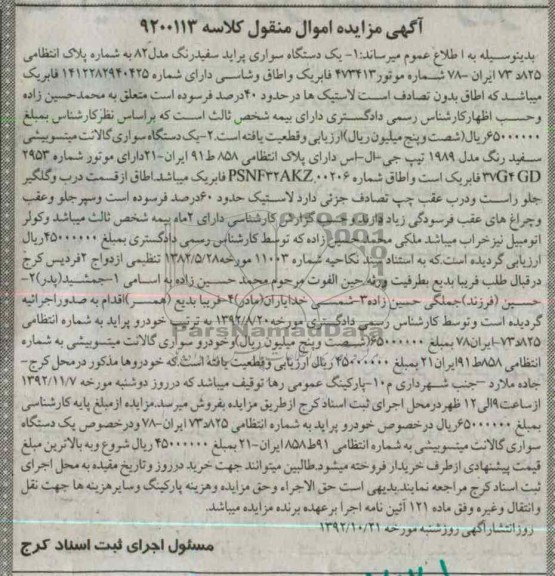 آگهی مزایده اموال منقول کلاسه ۹۲۰۰۱۱۳
بدینوسیله به اطلاع عموم میرساند:۱- یک دستگاه سواری پراید سفیدرنگ مدل۸۲ به شماره پلاک انتظامی
۸۲۵د۷۳ ایران -۷۸ شماره موتور۴۷۳۴۱۳ فابریک و اطاق وشاسی دارای شماره ۱۴۱۲۲۸۲۹۴۰۴۲۵ فابریک
میباشد که اطاق بدون تصادف است لاستیک ها درحدود ۴۰درصد فرسوده است متعلق به محمدحسین زاده
وحسب اظهارکارشناس رسمی دادگستری دارای بیمه شخص ثالث است که براساس نظرکارشناس بمبلغ
۶۵۰۰۰۰۰۰ریال(شصت وپنج میلیون ریال)ارزیابی وقطعیت یافته است.۲-یک دستگاه سواری گالانت میتسوبیشی
سفید رنگ مدل ۱۹۸۹ تیپ جی-ال-اس دارای پلاک انتظامی ۸۵۸ ط۹۱ ایران-۲۱دارای موتور شماره ۲۹۵۳
۳۷G۴ GD فابریک است واطاق شماره PSNF۳۲AKZ.۰۰۲۰۶ فابریک میباشد.اطاق ازقسمت درب وگلگیر
جلو راست ودرب عقب چپ تصادف جزئی دارد لاستیک حدود ۶۰درصد فرسوده است وسپر جلو وعقب
وچراغ های عقب فرسودگی زیاد دارند وبه گزارش کارشناسی دارای ۲ماه بیمه شخص ثالث میباشد وکولر
اتومبیل نیزخراب میباشد.ملکی محمدحسین زاده که توسط کارشناس رسمی دادگستری بمبلغ ۴۵۰۰۰۰۰۰ریال
ارزیابی گردیده است.که به استناد سند نکاحیه شماره ۱۱۰۰۳ مورخه۱۳۸۲/۵/۲۸ تنظیمی ازدواج ۲فردیس کرج
درقبال طلب فریبا بدیع بطرفیت ورثه حین الفوت مرحوم محمد حسین زاده به اسامی ۱-جمشید(پدر)۲-
حسین (فرزند)جملگی حسین زاده۳-شمسی خدایاران(مادر)۴-فریبا بدیع (همسر)اقدام به صدوراجرائیه
گردیده است وتوسط کارشناس رسمی دادگستری مورخه۱۳۹۲/۸/۲۰ به ترتیب خودرو پراید به شماره انتظامی
۸۲۵د۷۳-ایران۷۸ بمبلغ ۶۵۰۰۰۰۰۰(شصت وپنج میلیون ریال)وخودرو سواری گالانت میتسوبیشی به شماره
انتظامی ۸۵۸ط۹۱ایران۲۱ بمبلغ ۴۵۰۰۰۰۰۰ ریال ارزیابی وقطعیت یافته است.که خودروها مذکور درمحل کرج-
جاده ملارد -جنب شهرداری م۱۰-پارکینگ عمومی رها توقیف میباشد که درروز دوشنبه مورخه ۱۳۹۲/۱۱/۷
ازساعت۹الی۱۲ ظهردرمحل اجرای ثبت اسناد کرج ازطریق مزایده بفروش میرسد.مزایده ازمبلغ پایه کارشناسی
بمبلغ ۶۵۰۰۰۰۰۰ریال درخصوص خودرو پراید به شماره انتظامی ۸۲۵د۷۳ایران-۷۸ ودرخصوص یک دستگاه
سواری گالانت میتسوبیشی به شماره انتظامی ۹۱ط۸۵۸ ایران-۲۱ بمبلغ ۴۵۰۰۰۰۰۰ ریال شروع وبه بالاترین مبلغ
قیمت پیشنهادی ازطرف خریدار فروخته میشود.طالبین میتوانند جهت خرید درروز وتاریخ مقیده به محل اجرای
ثبت اسناد کرج مراجعه نمایند.بدیهی است حق الاجراء وحق مزایده وهزینه پارکینگ وسایرهزینه ها جهت نقل
وانتقال وغیره وفق ماده ۱۲۱ آئین نامه اجرا برعهده برنده مزایده میباشد.
روزانتشارآگهی روزشنبه مورخه ۱۳۹۲/۱۰/۲۱
مسئول اجرای ثبت اسناد کرج
ParsNamadData